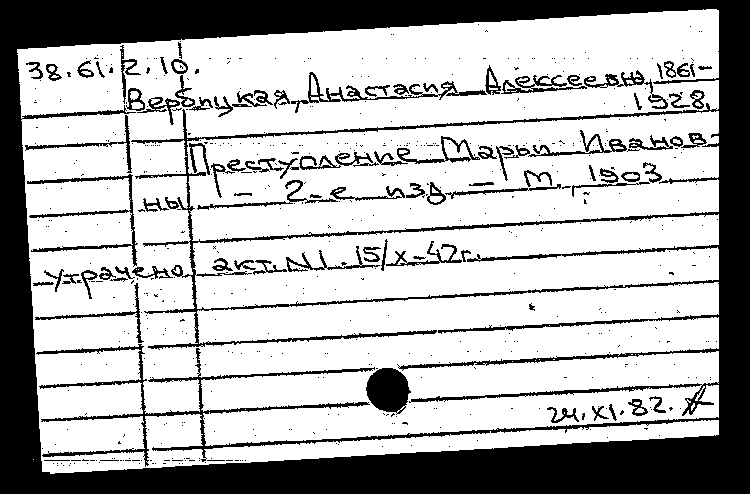 38.61.2.10.
Вербицкая, Анастасия Алексеевна, 1861-
1928.
Преступление Марьи Иванов-
ны. - 2-е изд. - М., 1903.
Утрачено акт. N1. 15/X-47г.
24.XI.82.